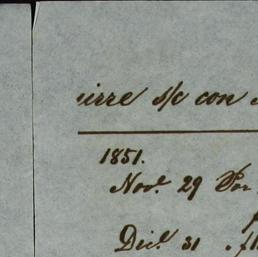 uirre s/c con
1851.
Nov.e 29 Por
Dic.e 31